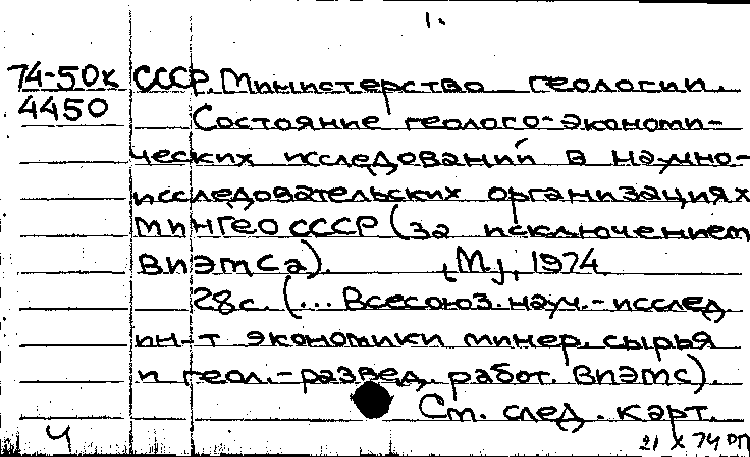 1.
74-50к СССР. Министерство геологии.
4450 Состояние геолого-экономи-
ческих исследований в научно-
исследовательских организациях
МИНГЕО СССР (за исключением
ВИЭМСа). [М], 1974.
28с. (... Всесоюз. науч.-исслед
ин-т экономики минер. сырья
и геол.-развед. работ. ВИЭМС).
См. след. карт.
4 21 X 74 РП